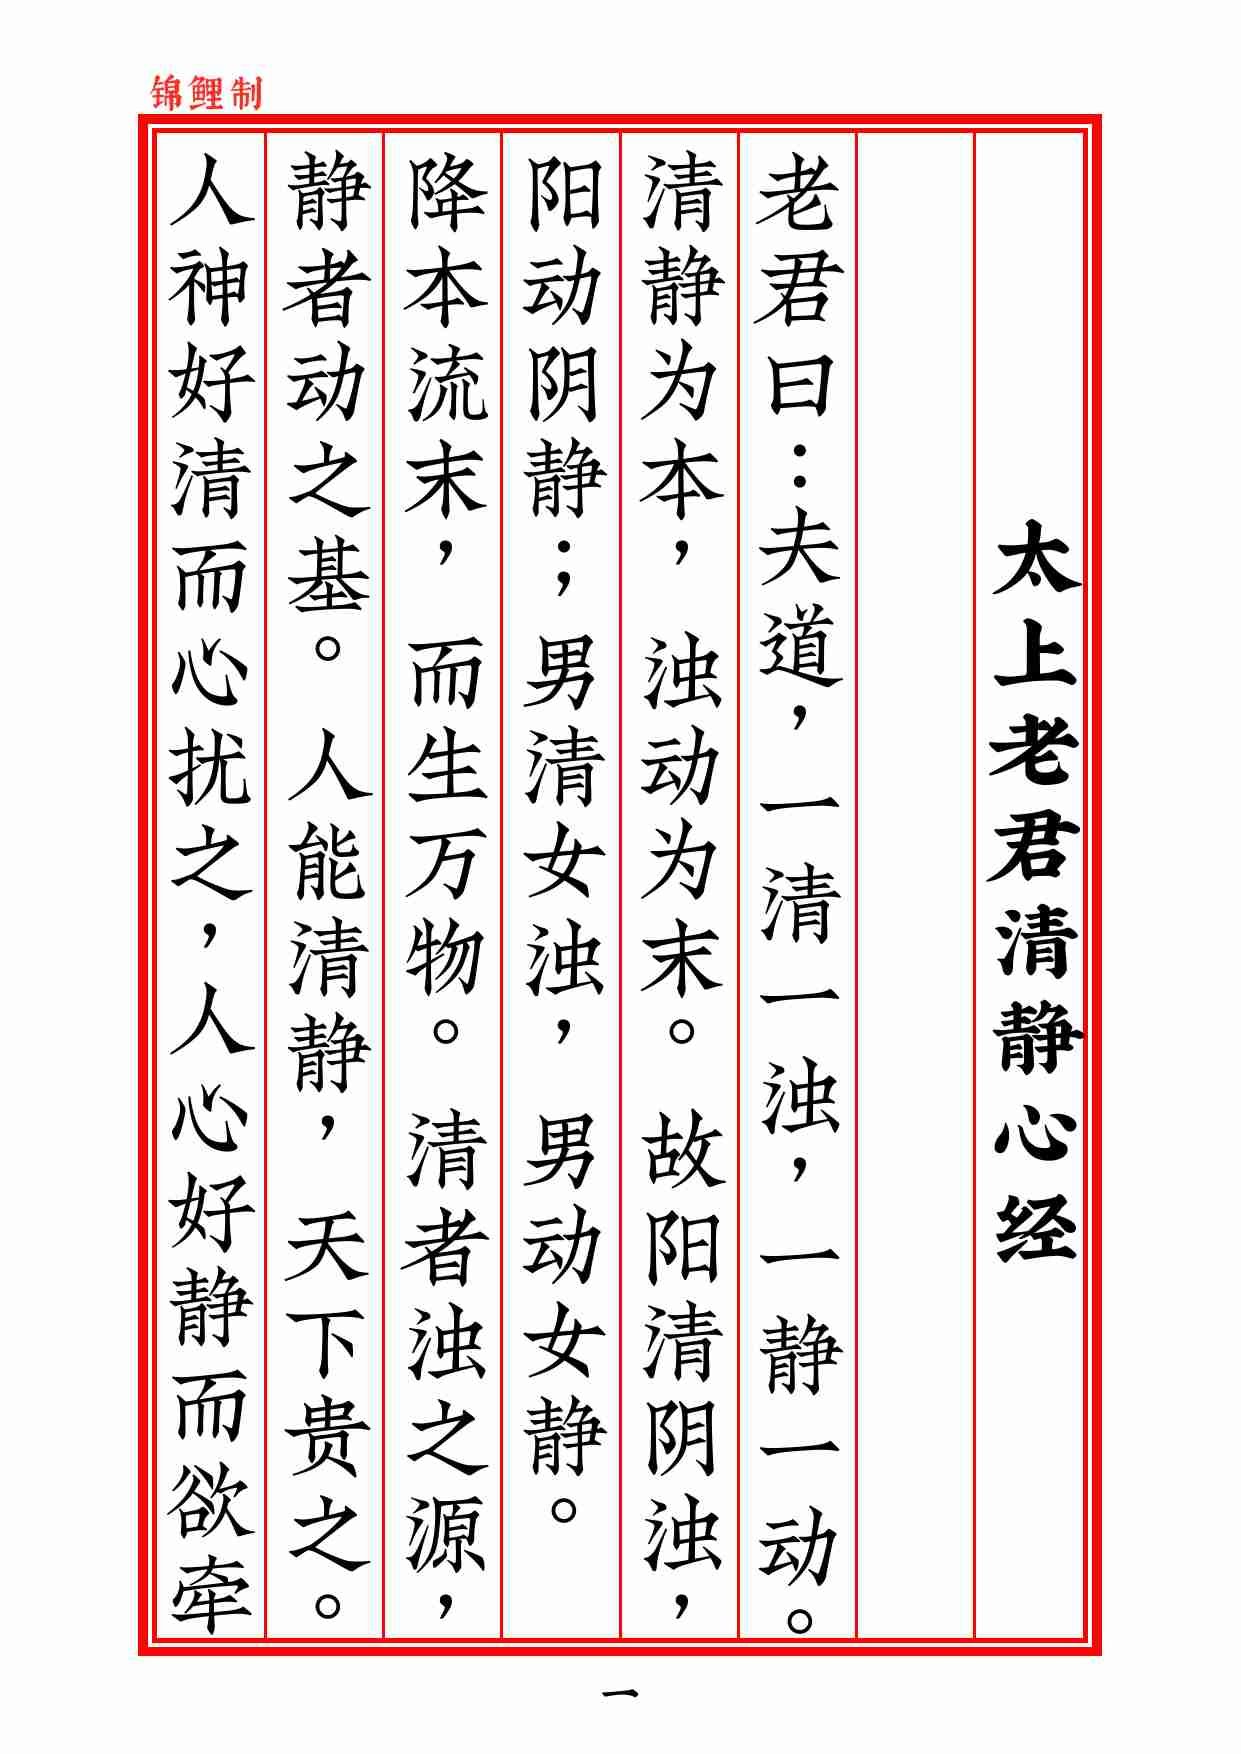 锦鲤制
太上老君清静心经
老君曰：夫道，一清一浊，一静一动。
清静为本，浊动为末。故阳清阴浊，
阳动阴静；男清女浊，男动女静。
降本流末，而生万物。清者浊之源，
静者动之基。人能清静，天下贵之。
人神好清而心扰之，人心好静而欲牵
一